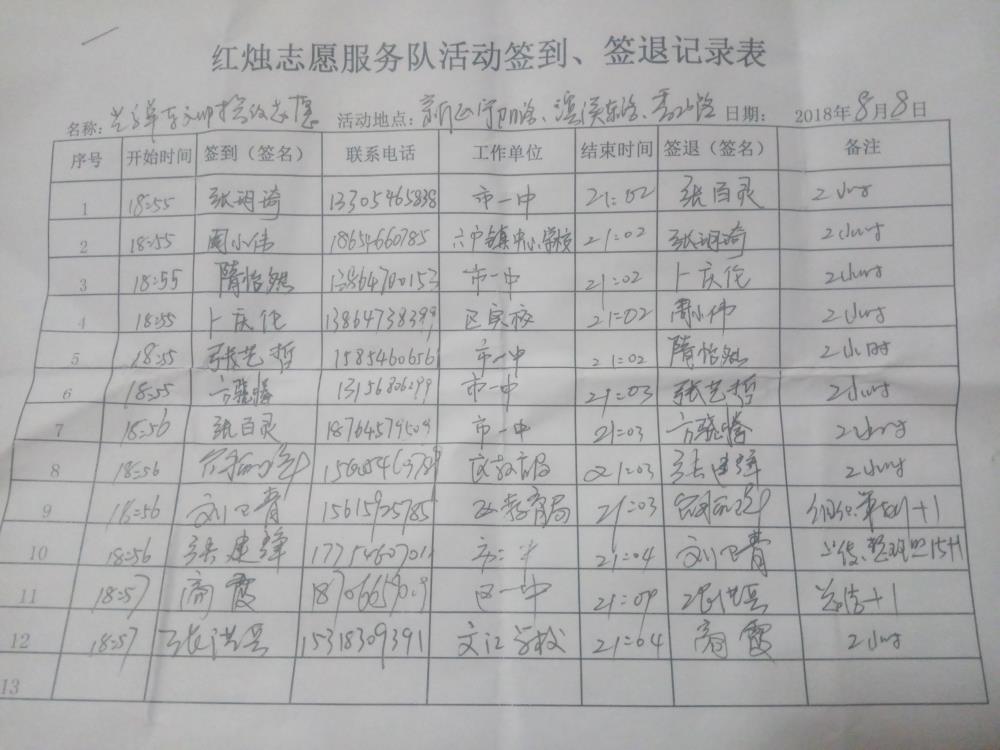 红烛志愿服务队活动签到、签退记录表
名称: 活动地点: 日期: 2018年8月8日
序号 开始时间 签到（签名） 联系电话 工作单位 结束时间 签退（签名） 备注
1 18:55 张玥琦 13305465838 市一中 21:02 张百灵 2小时
2 18:55 周小伟 18654660785 六户镇中心学校 21:02 张玥琦 2小时
3 18:55 隋怡然 13864700153 市一中 21:02 卜庆伦 2小时
4 18:55 卜庆伦 13864738399 区实校 21:02 周小伟 2小时
5 18:55 张艺哲 15854606561 市一中 21:02 隋怡然 2小时
6 18:55 方骁腾 13156806299 市一中 21:03 张艺哲 2小时
7 18:56 张百灵 18764579509 市一中 21:03 方骁腾 2小时
8 18:56 区教育局 21:03 张建锋 2小时
9 18:56 刘卫青 15615925785 区教育局 21:03 +1
10 18:56 张建锋 21:04 刘卫青
11 18:57 商霞 区一中 21:04 张洪昌 总结+1
12 18:57 张洪昌 15318309391 文汇学校 21:04 商霞 2小时
13